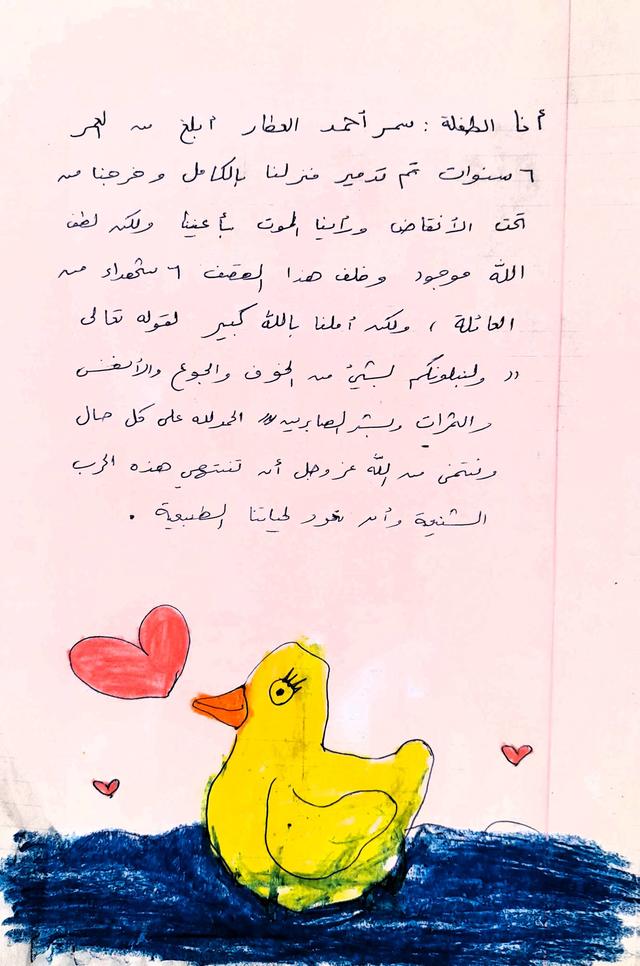 أنا الطفلة : سمر أحمد العطار أبلغ من العمر
٦ سنوات تم تدمير منزلنا بالكامل وخرجنا من
تحت الأنقاض ورأينا الموت بأعيننا ولكن لطف
الله موجود وخلف هذا القصف ٦ شهداء من
العائلة ، ولكن أملنا بالله كبير لقوله تعالى
" ولنبلونكم بشيء من الخوف والجوع والأنفس
والثمرات وبشر الصابرين " الحمدلله على كل حال
ونتمنى من الله عز وجل أن تنتهي هذه الحرب
الشنيعة وأن نعود لحياتنا الطبيعية .